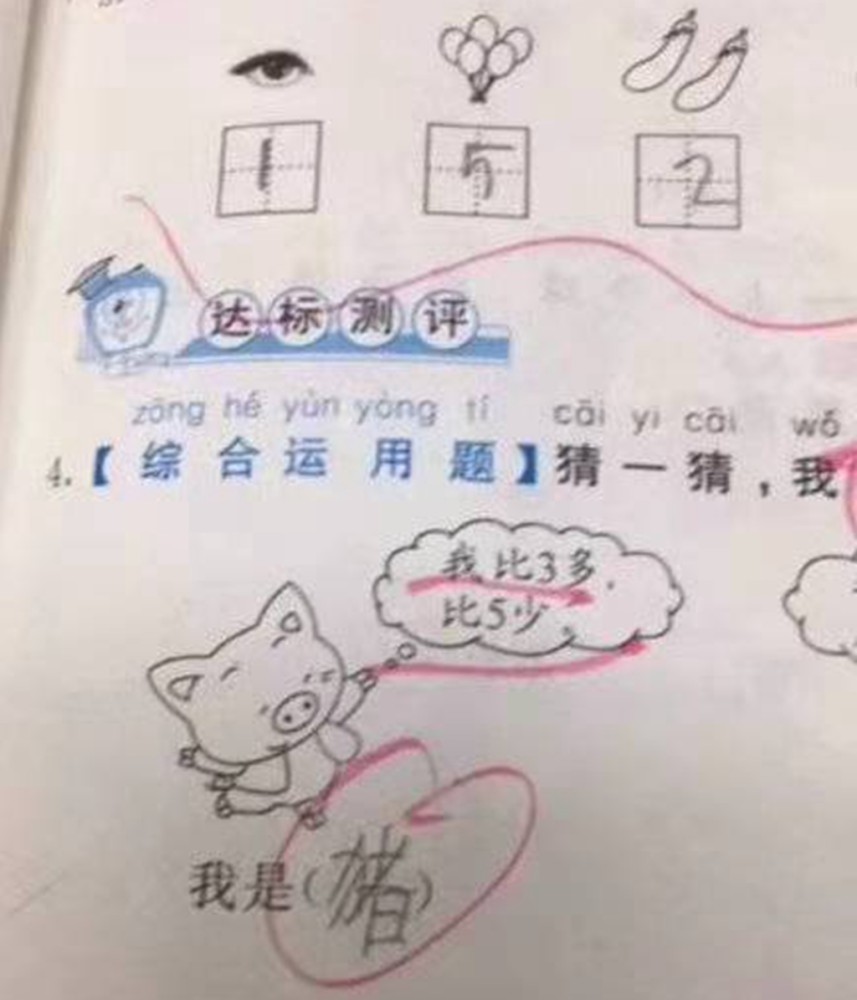 1 5 2
达标测评
zōng hé yùn yòng tí cāi yi cāi wǒ
4.【综合运用题】猜一猜，我
我比3多，
比5少。
我是(猪)